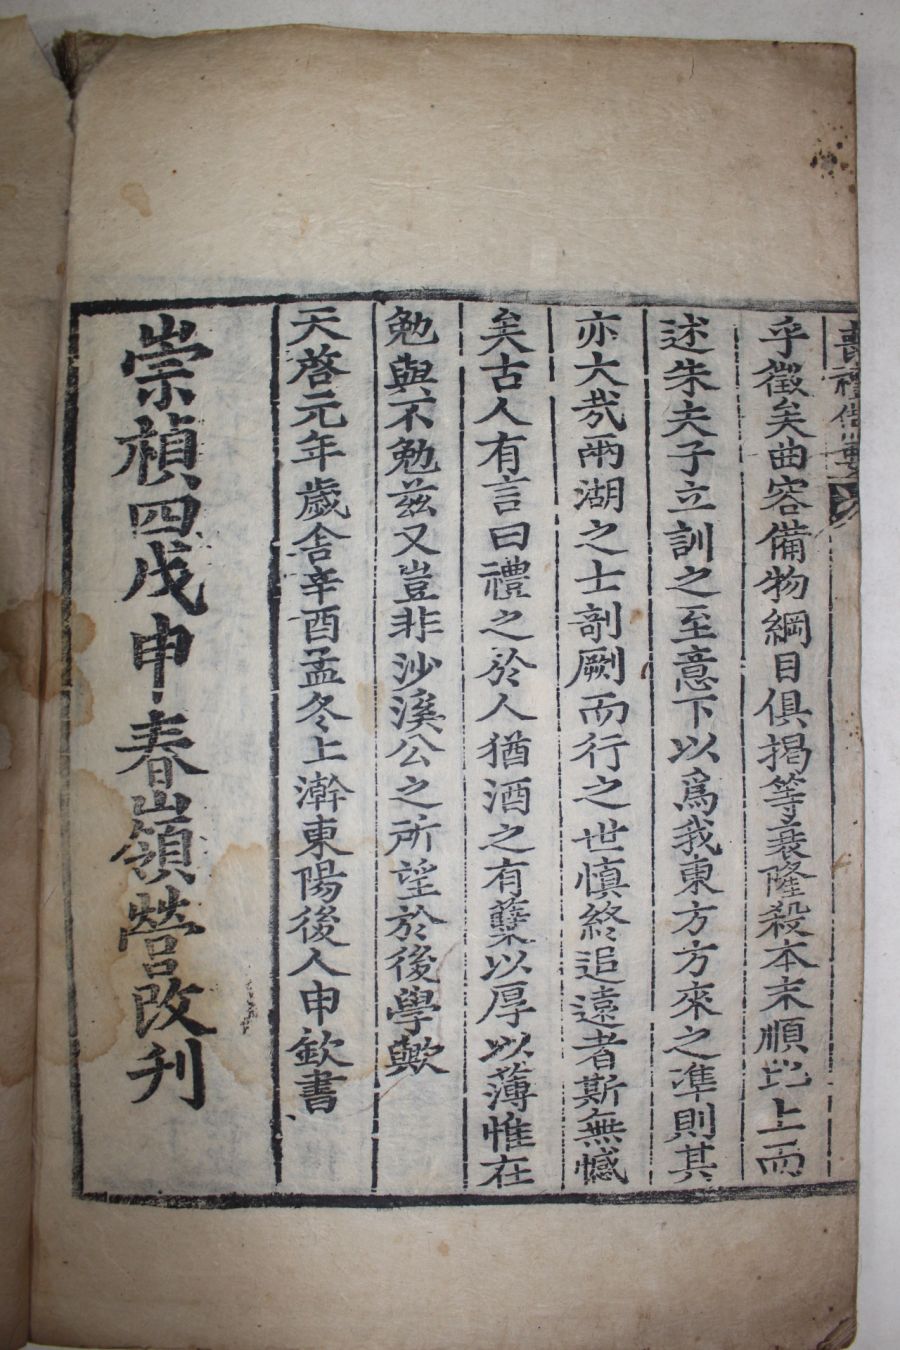 喪禮備要
乎徵矣曲容備物綱目俱揭等衰隆殺本末順比上而
述朱夫子立訓之至意下以爲我東方方來之準則其
亦大㢤兩湖之士剞劂而行之世愼終追遠者斯無憾
矣古人有言曰禮之於人猶酒之有蘖以厚以薄惟在
勉與不勉玆又豈非沙溪公之所望於後學歟
天啓元年歲舍辛酉孟冬上澣東陽後人申欽書
崇禎四戊申春嶺營改刋